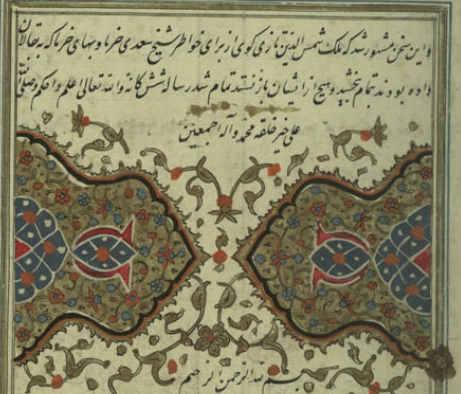 و این سخن مشهور شد که ملک شمس الدین تازی کوی از برای خاطر شیخ سعدی خرما و بهای خرما که به بقالان
داده بودند تمام بخشید و هیچ از ایشان باز نستد تمام شد رساله شش کانه والله تعالی اعلم واحکم وصلی الله
علی خیر خلقه محمد واله اجمعین
بسم الله الرحمن الرحیم